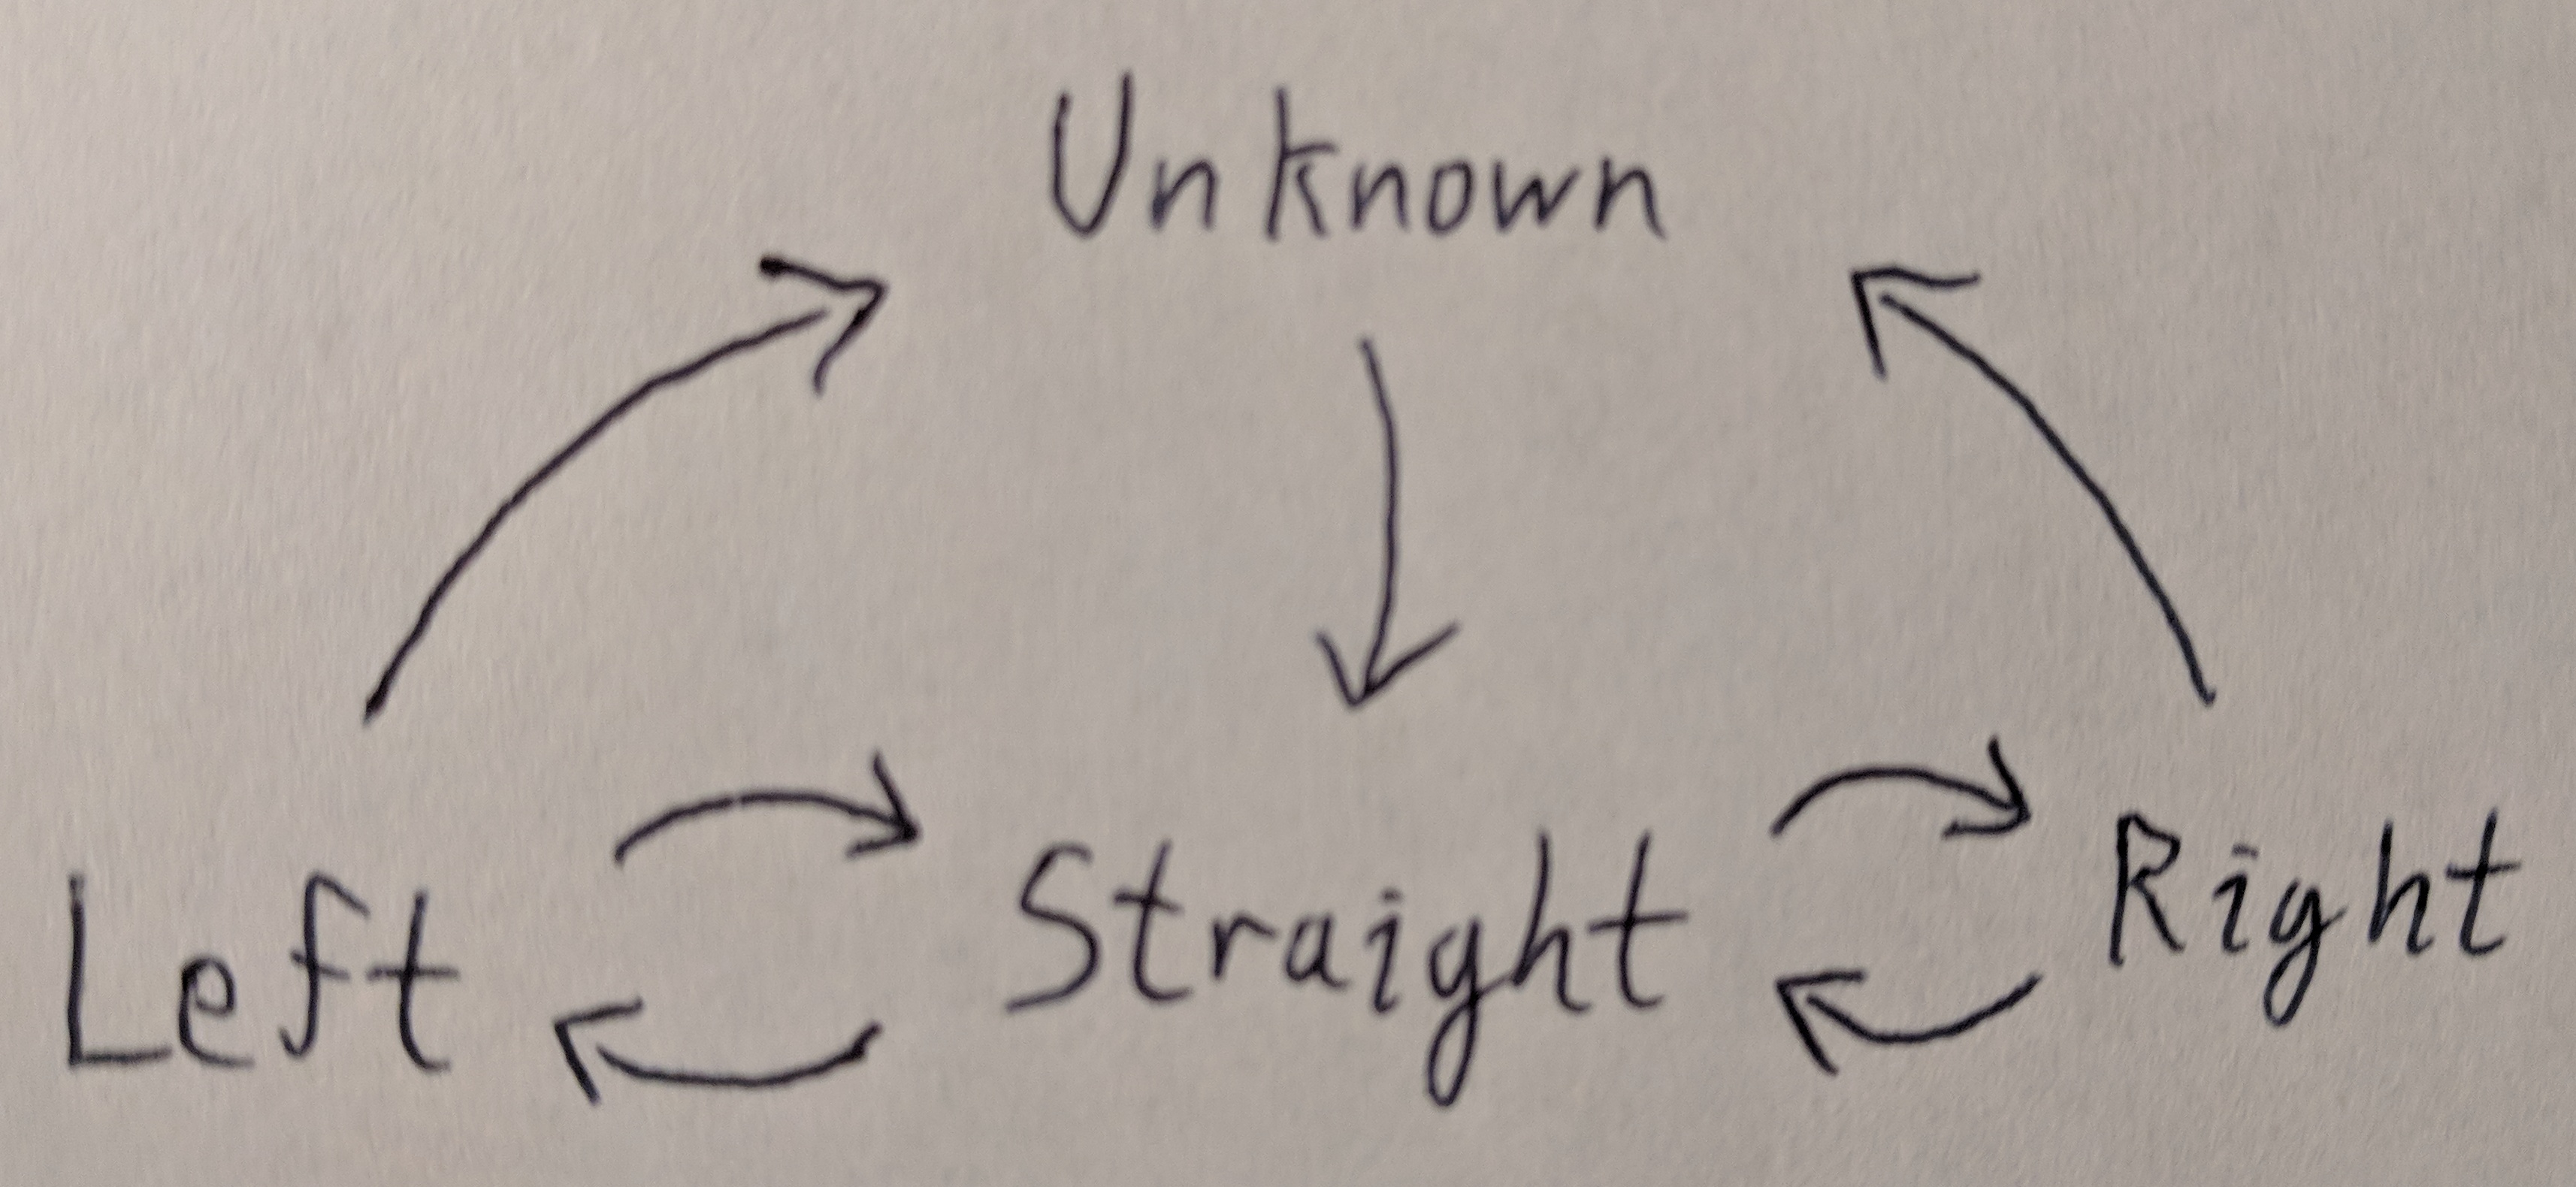 Unknown
Left Straight Right